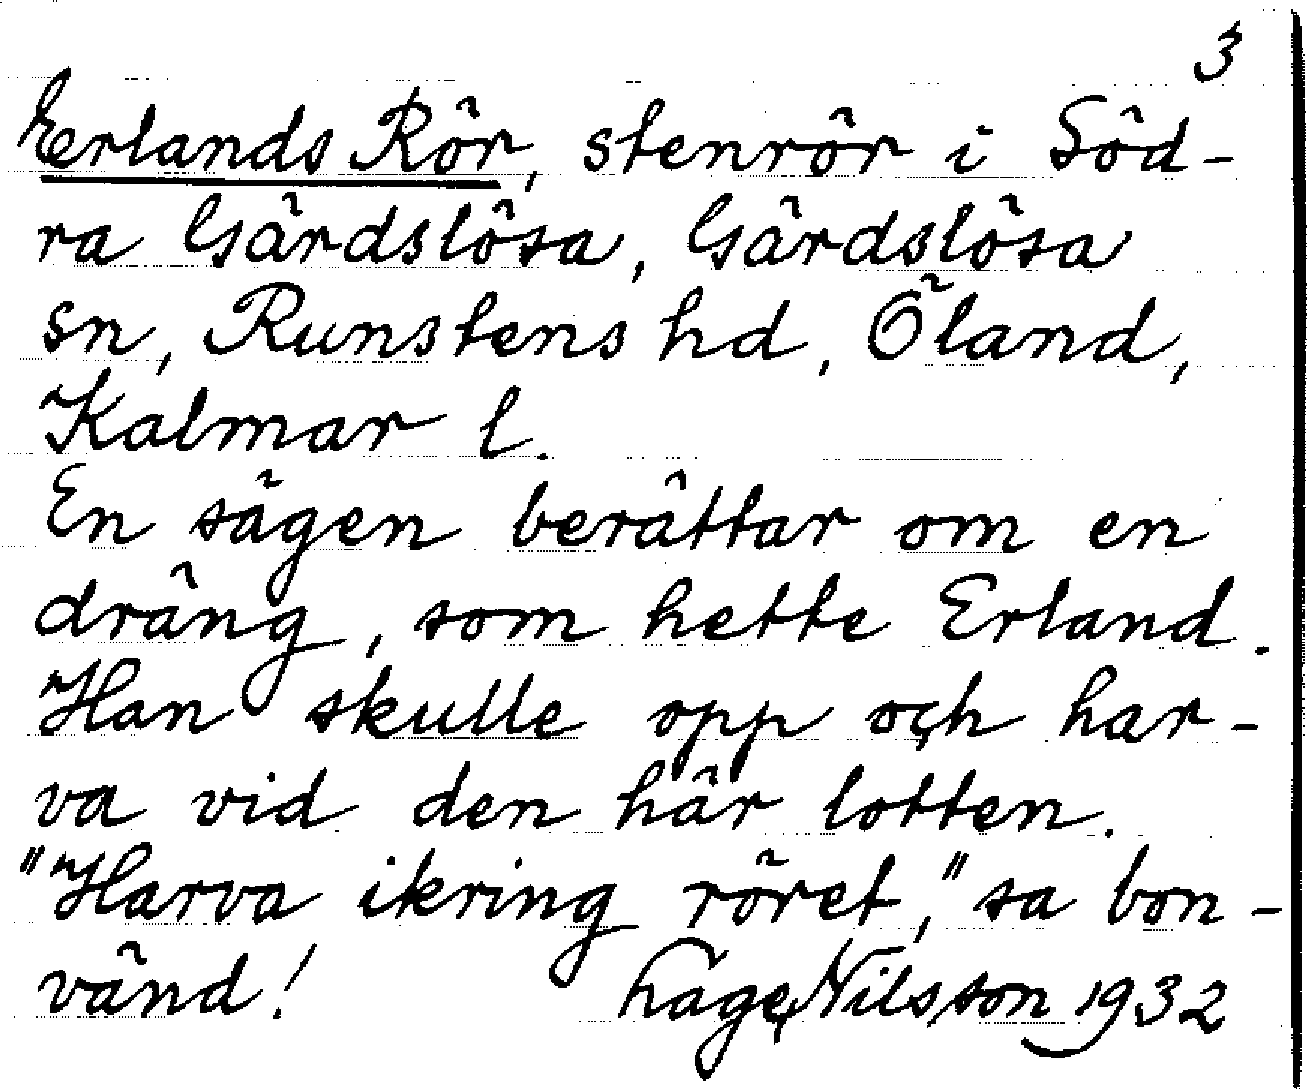 3
Erlands Rör, stenrör i Söd-
ra Gärdslösa, Gärdslösa
sn, Runstens hd, Öland,
Kalmar l.
En sägen berättar om en
dräng, som hette Erland.
Han skulle opp och har-
va vid den här lotten.
"Harva ikring röret," sa bon-
vänd! Åge Nilsson 1932